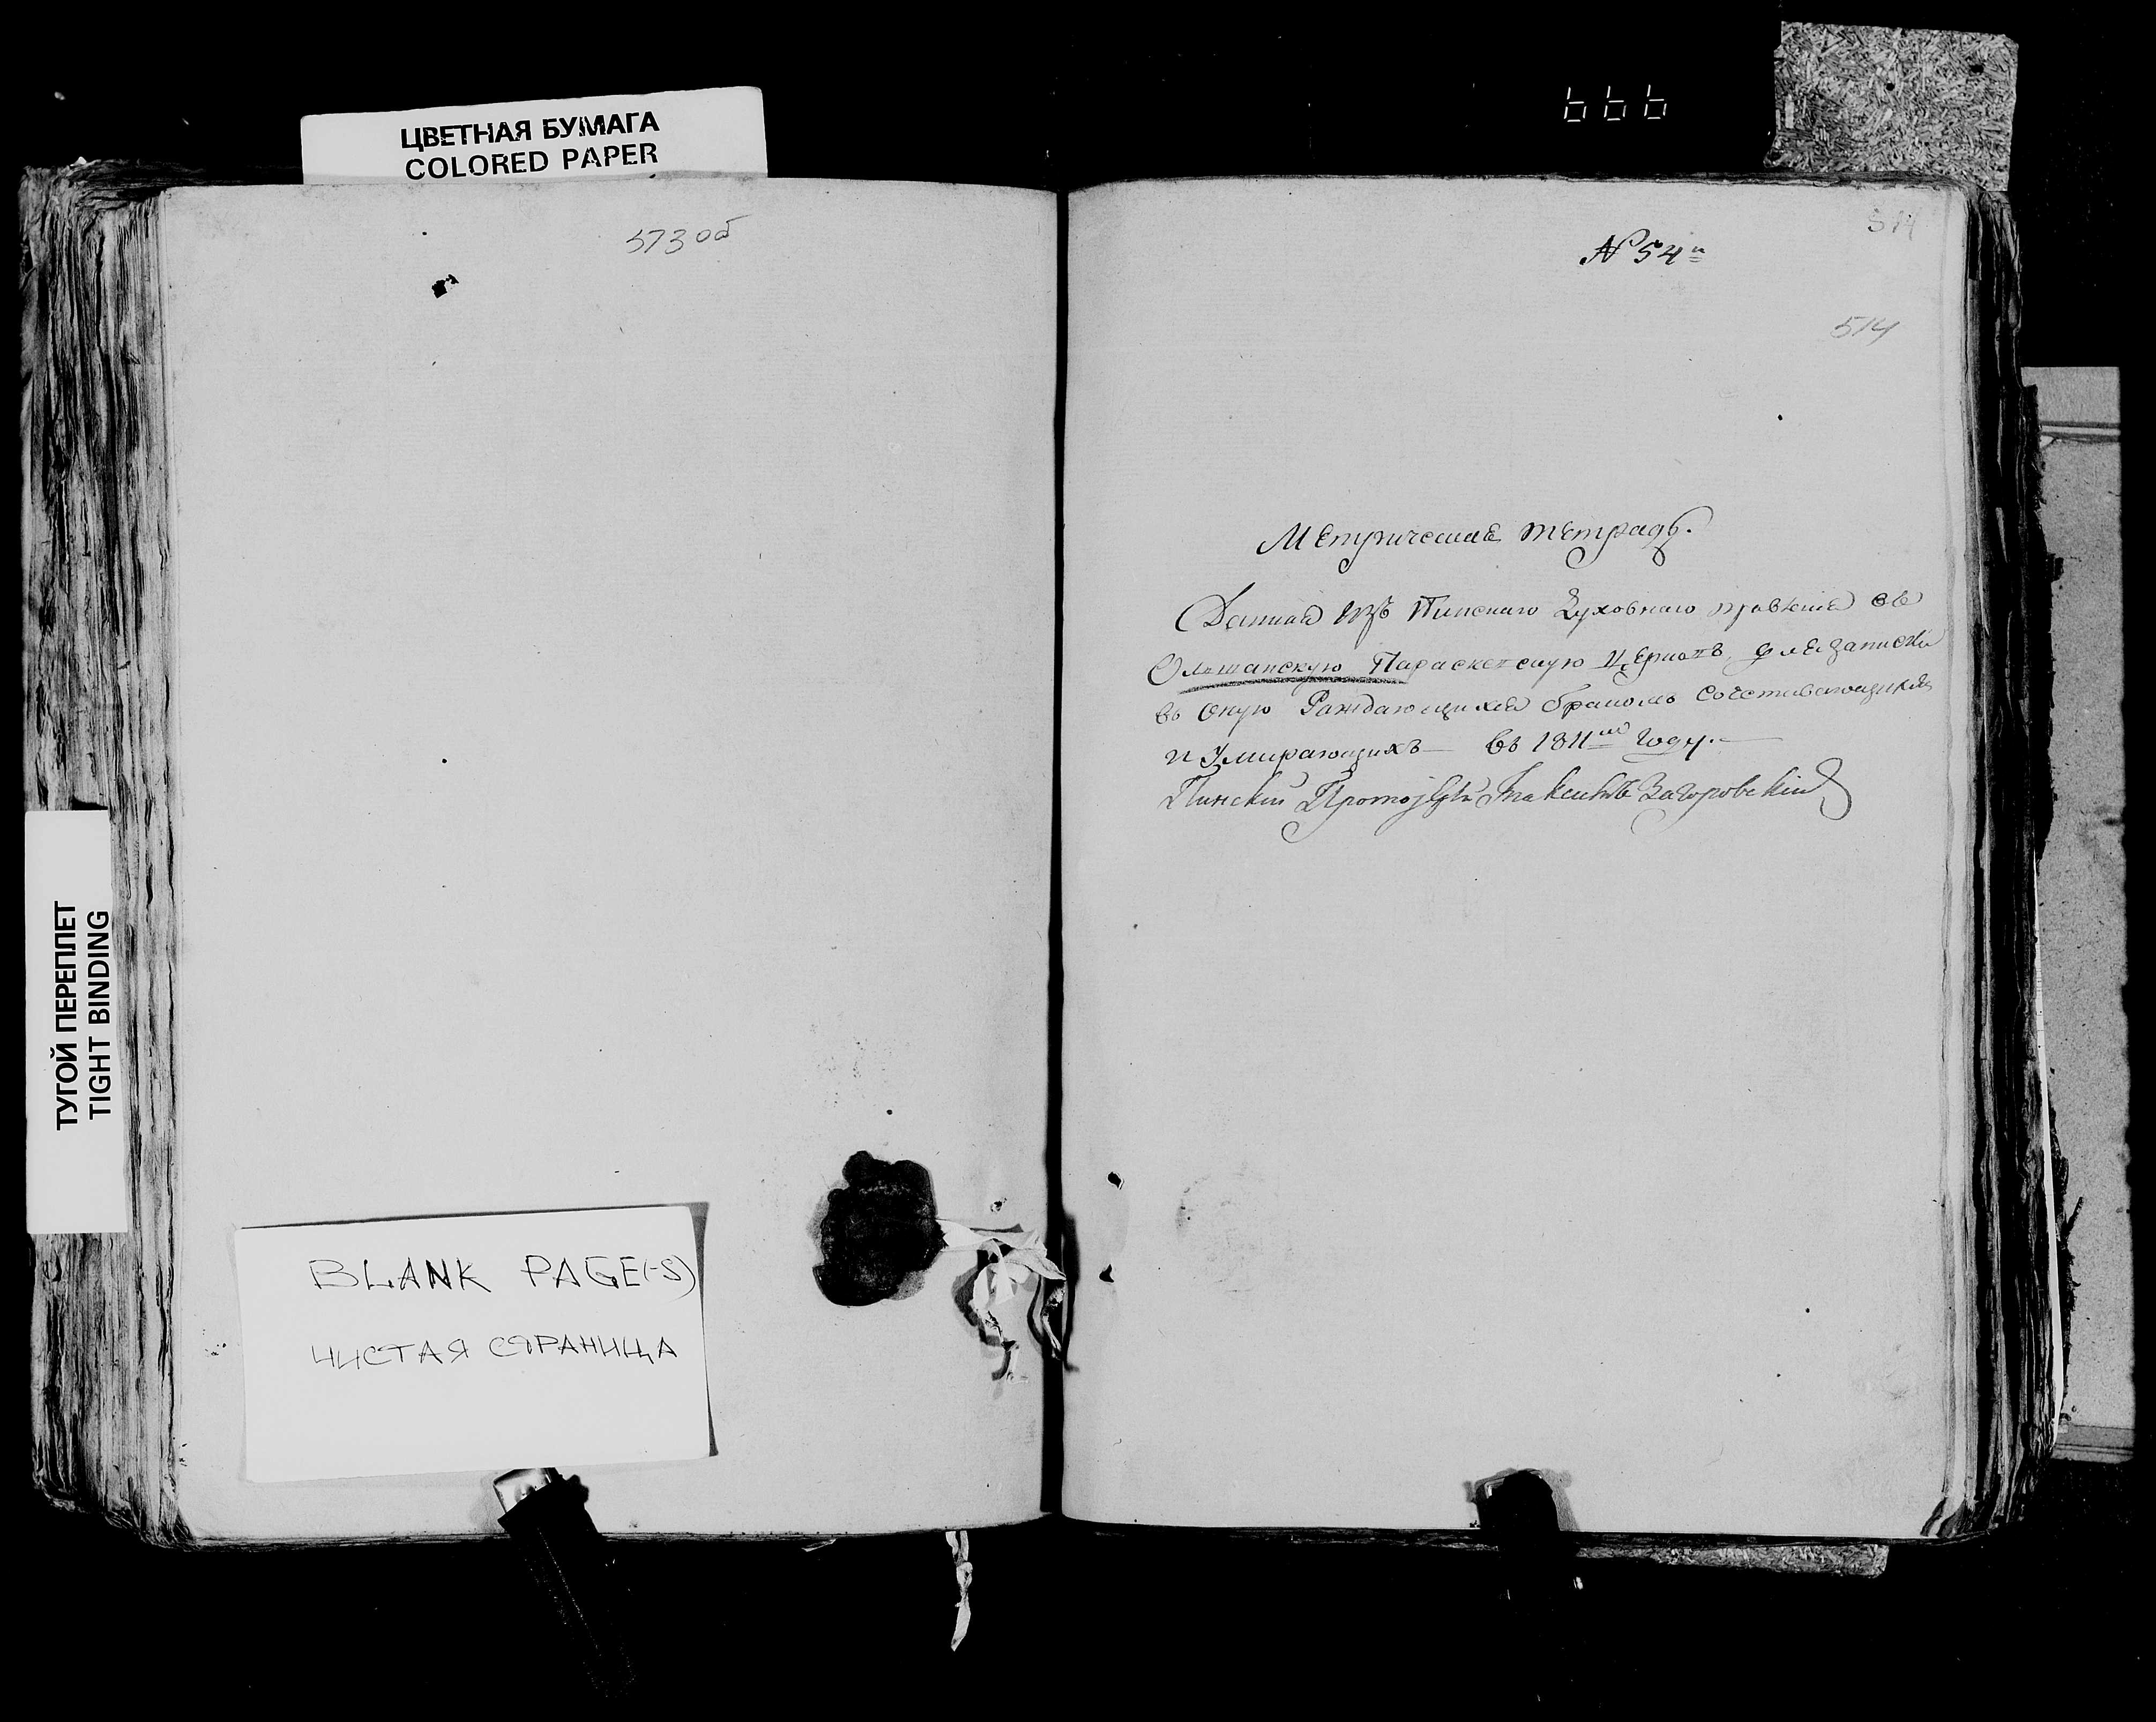 ЦВЕТНАЯ БУМАГА
COLORED PAPER
573 об
ТУГОЙ ПЕРЕПЛЕТ
TIGHT BINDING
BLANK PAGE(-S)
ЧИСТАЯ СТРАНИЦА
666
514
N 54й
514
Метрическая тетрадь.
Данная изъ Пинскаго Духовнаго правленiя въ
Ольшанскую Параскевскую церковь для записки
въ оную Раждающихся бракомъ Сочетавающихся
и Умирающихъ — въ 1811мъ году.—
Пинскiй Протоiерей Максимъ Загоровскiй